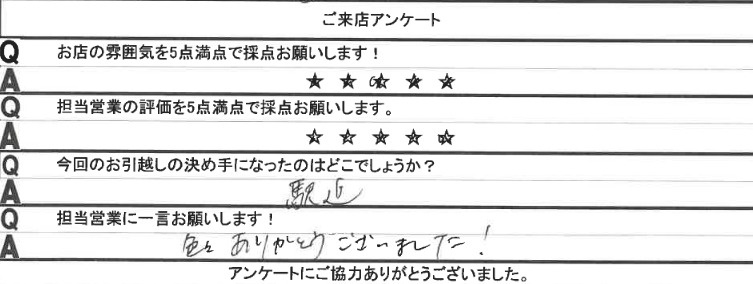 ご来店アンケート
Q お店の雰囲気を5点満点で採点お願いします！
A ☆ ☆ ☆ ☆ ☆
Q 担当営業の評価を5点満点で採点お願いします。
A ☆ ☆ ☆ ☆ ☆
Q 今回のお引越しの決め手になったのはどこでしょうか？
A 駅近
Q 担当営業に一言お願いします！
A 色々ありがとうございました！
アンケートにご協力ありがとうございました。